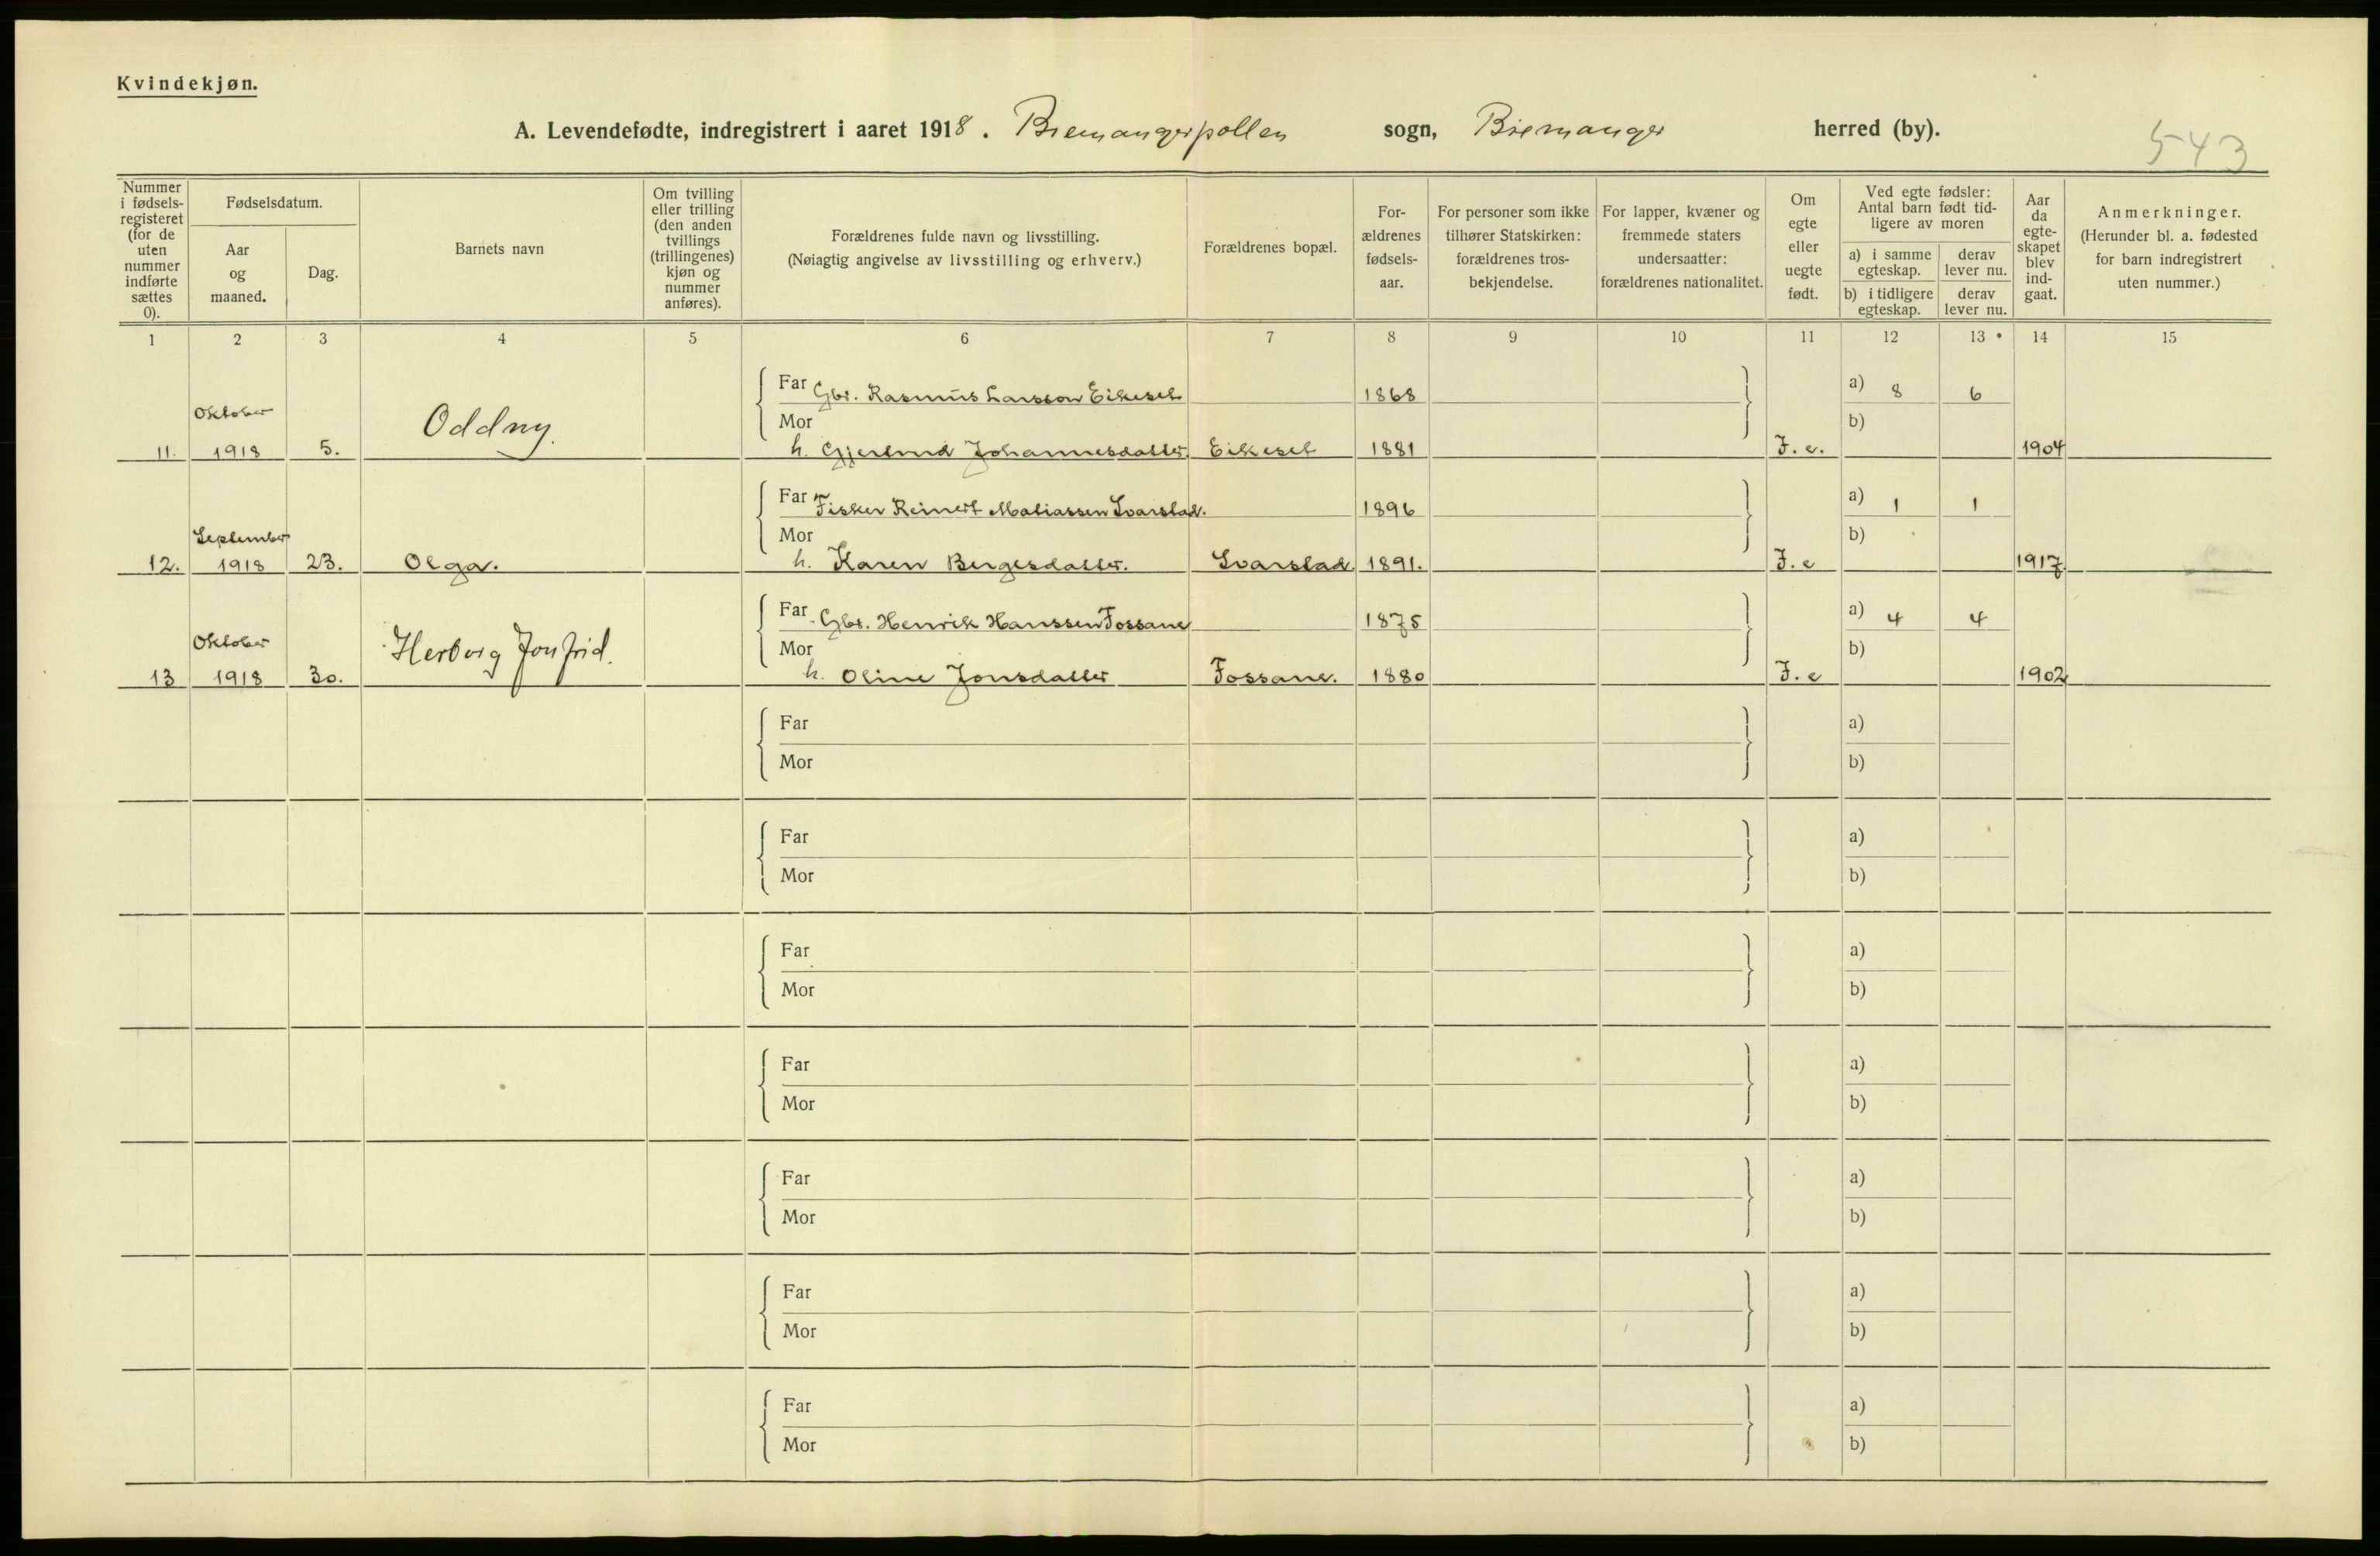 Kvindekjøn.
A. Levendefødte, indregistrert i aaret 1918. Bremangerpollen sogn, Bremanger herred (by).
543
Nummer i fødsels-registeret (for de uten nummer indførte sættes 0).
Fødselsdatum.
Aar og maaned.
Dag.
Barnets navn
Om tvilling eller trilling (den anden tvillings (trillingenes) kjøn og nummer anføres).
Forældrenes fulde navn og livsstilling.
(Nøiagtig angivelse av livsstilling og erhverv.)
Forældrenes bopæl.
For-ældrenes fødsels-aar.
For personer som ikke tilhører Statskirken: forældrenes tros-bekjendelse.
For lapper, kvæner og fremmede staters undersaatter: forældrenes nationalitet.
Om egte eller uegte født.
Ved egte fødsler: Antal barn født tid-ligere av moren
a) i samme egteskap.
derav lever nu.
b) i tidligere egteskap.
derav lever nu.
Aar da egte-skapet blev ind-gaat.
Anmerkninger.
(Herunder bl. a. fødested for barn indregistrert uten nummer.)
1 2 3 4 5 6 7 8 9 10 11 12 13 14 15
Far Gbr. Rasmus Larsson Eikeset 1868 a) 8 6
Oktober
Oddny.
Mor b)
11. 1918 5. h. Gjertrud Johannesdatter Eikeset 1881 J. e. 1904
Far Fisker Reinert Matiassen Svarstad. 1896 a) 1 1
September
Mor b)
12. 1918 23. Olga. h. Karen Bergesdatter. Svarstad. 1891. J. e 1917.
Far Gbr. Henrik Hanssen Fossane 1875 a) 4 4
Oktober
Herborg Jonfrid.
Mor b)
13 1918 30. h. Oline Jonsdatter Fossane. 1880 J. e 1902
Far a)
Mor b)
Far a)
Mor b)
Far a)
Mor b)
Far a)
Mor b)
Far a)
Mor b)
Far a)
Mor b)
Far a)
Mor b)